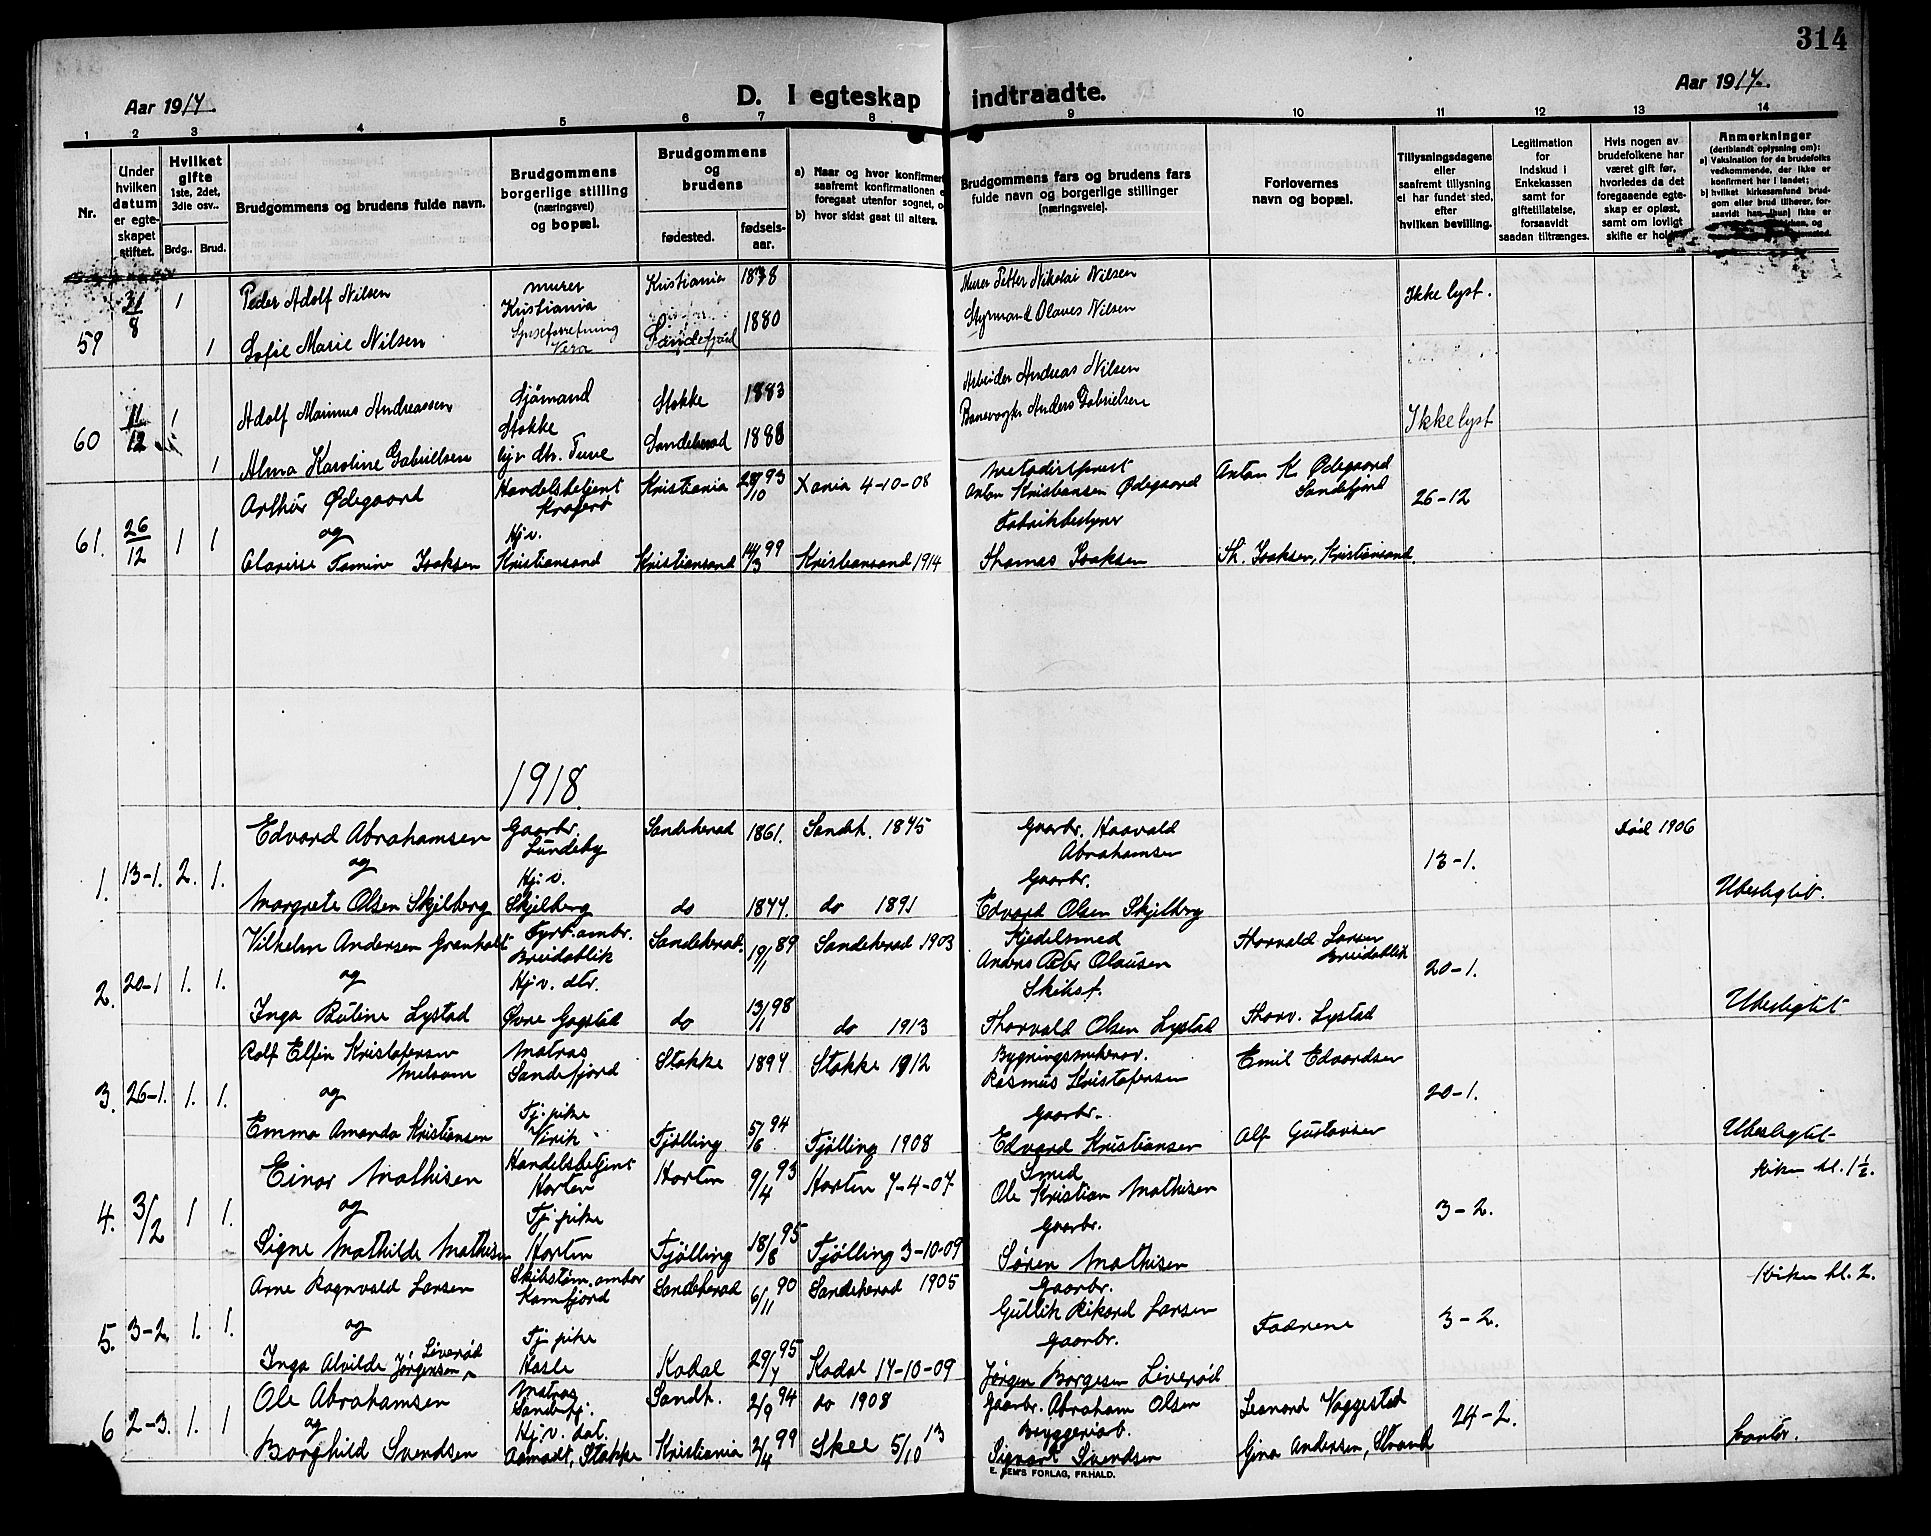 314
Aar 1917.
D. I egteskap indtraadte.
Aar 1917.
1 2 3 4 5 6 7 8 9 10 11 12 13 14
Nr.
Under hvilken datum er egteskapet stiftet.
Hvilket gifte 1ste, 2det, 3die osv..
Brdg.. Brud.
Brudgommens og brudens fulde navn.
Brudgommens borgerlige stilling (næringsvei) og bopæl.
Brudgommens og brudens
fødested. fødselsaar.
a) Naar og hvor konfirmert
saafremt konfirmationen e
foregaat utenfor sognet, o
b) hvor sidst gaat til alters.
Brudgommens fars og brudens fars fulde navn og borgerlige stillinger (næringsveie).
Forlovernes navn og bopæl.
Tillysningsdagene eller saafremt tillysning ei har fundet sted, efter hvilken bevilling.
Legitimation for Indskud i Enkekassen samt for giftetillatelse, forsaavidt saadan tiltrænges.
Hvis nogen av brudefolkene har været gift før, hvorledes da det foregaaende egteskap er opløst, samt om lovligt skifte er hold
Anmerkninger
(deriblandt oplysning om):
a) Vaksination for de brudefolks vedkommende, der ikke er konfirmert her i landet;
b) hvilket kirkesamfund brudgom eller brud tilhører, forsaavidt han (hun) ikke er
59 31/8 1 Peder Adolf Nilsen murer Kristiania Kristiania 1878 Murer Petter Nikolai Nilsen Ikke lyst.
1 Sofie Marie Nilsen Spiseforretning Vera Sandefjord 1880 Styrmand Olaves Nilsen
60 11/12 1 Adolf Marinus Andreassen Sjømand Stokke Stokke 1883 Arbeider Andreas Nilsen Ikke lyst
1 Alma Karoline Gabrielsen Sandeherad 1888 Banevogter Anders Gabrielsen
61. 26/12 1 1 Arthur Ødegaard Handelsbetjent Kragerø Kristiania 28/10 93 Xania 4-10-08 Metodistprest Anton Kristiansen Ødegaard Anton K Ødegaard Sandefjord 26-12
og
Clarisse Famine Isaksen Hj.v. Kristiansand Kristiansand 14/3 99 Kristiansand 1914 Fabrikbestyrer Thomas Isaksen Th. Isaksen, Kristiansand.
1918.
1. 13-1. 2. 1. Edvard Abrahamsen Gaarbr. Lundeby Sandeherad 1861. Sandh. 1875 Gaarbr. Haavald Abrahamsen 13-1. død 1906
og
Margrete Olsen Skjelberg Hj.v. Skjelberg do 1877. do 1891 Gaarbr. Edvard Olsen Skjelberg Ubeslegtet.
2. 20-1 1. 1. Vilhelm Andersen Granholt Fyrb. ambr. Breidablik Sandeherad. 19/1 89 Sandeherad 1903 Kjedelsmed Anders Peter Olausen Thorvald Larsen Breidablik 20-1.
og
Inga Butine Lystad Hj.v. dtr. Øvre Gogstad do 13/1 98 do 1913 Skibsf. Thorvald Olsen Lystad Thorv. Lystad Ubeslegtet
3. 26-1. 1. 1. Rolf Elfin Kristofersen Melsom Matros Sandefjord Stokke 1897 Stokke 1912 Rasmus Kristofersen Emil Edvardsen 20-1.
og
Emma Amanda Kristiansen Tj. pike Virik Tjølling 5/6 94 Tjølling 1908 Gaarbr. Edvard Kristiansen Alf Gustavsen Ubeslegtet
4. 3/2 1 1. Einar Mathisen Handelsbetjent Horten Horten 9/4 93 Horten 7-4-07 Smed Ole Kristian Mathisen 3-2. kirken kl. 1½.
og
Signe Mathilde Mathisen Tj. pike Horten Tjølling 18/8 95 Tjølling 3-10-09 Gaarbr. Søren Mathisen
5. 3-2. 1. 1. Arne Ragnvald Larsen Skibstøm. ambor Kamfjord Sandeherad 6/11 90 Sandeherad 1905 Gaarbr. Gullik Rikard Larsen Fædrene 3-2. Kirken kl. 2.
og
Inga Alvilde Jørgensen Liverød Tj. pike Hasle Kodal 29/7 95 Kodal 17-10-09 Gaarbr. Jørgen Borgesen Liverød
6 2-3. 1. 1 Ole Abrahamsen Matros Sandefj. Sandh. 2/9 94 do 1908 Gaarbr. Abraham Olsen Leonard Vaggestad 24-2.
og
Borghild Svendsen Hj.v. dat. Aamodt, Stokke Kristiania 2/4 99 Skee 5/10 13 Bryggeriarb. Sigvart Svendsen Gina Andersen, Strand
E. SEM'S FORLAG, FR.HALD.